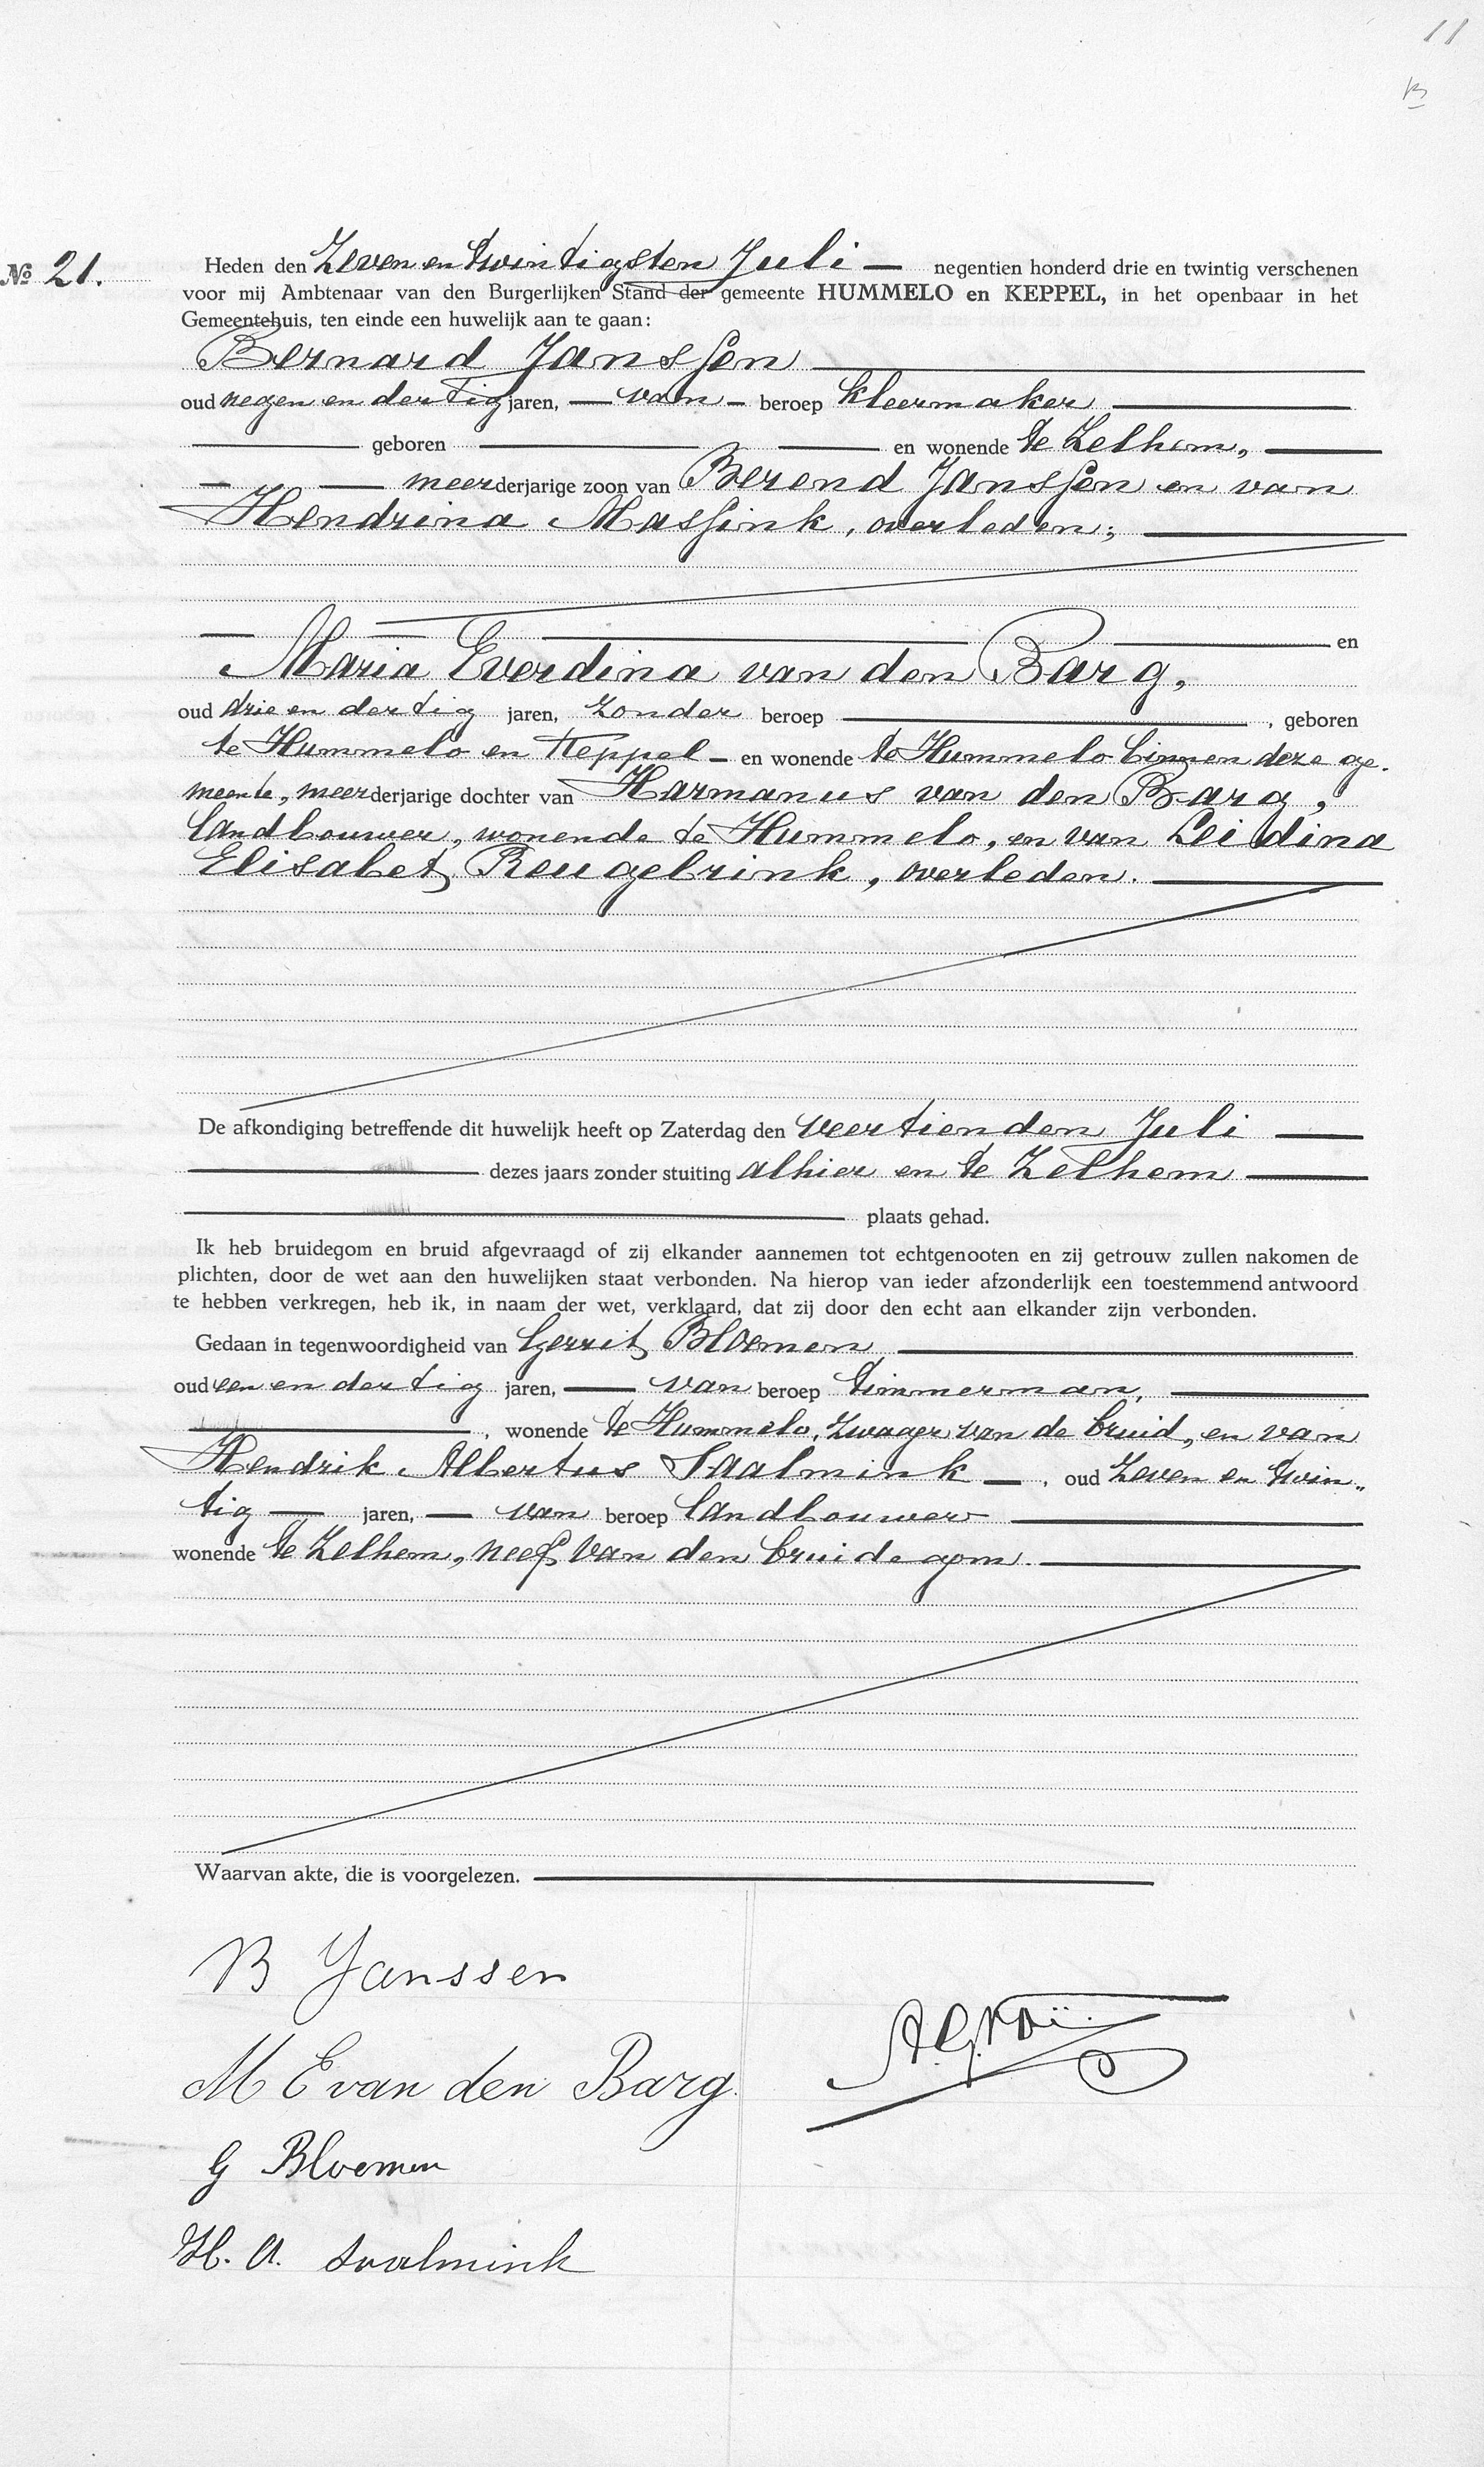 11
B
№ 21.
Heden den Zeven en twintigsten Juli — negentien honderd drie en twintig verschenen
voor mij Ambtenaar van den Burgerlijken Stand der gemeente HUMMELO en KEPPEL, in het openbaar in het
Gemeentehuis, ten einde een huwelijk aan te gaan:
Bernard Janssen
oud negen en dertig jaren, — van — beroep kleermaker
geboren — en wonende te Zelhem,
— meerderjarige zoon van Berend Janssen en van
Hendrina Massink, overleden;
en
Maria Everdina van den Barg,
oud drie en dertig jaren, zonder beroep —, geboren
te Hummelo en Keppel — en wonende te Hummelo binnen deze ge-
meente, meerderjarige dochter van Harmanus van den Barg,
landbouwer, wonende te Hummelo, en van Leidina
Elisabet Reugebrink, overleden.
De afkondiging betreffende dit huwelijk heeft op Zaterdag den veertienden Juli
— dezes jaars zonder stuiting alhier en te Zelhem
plaats gehad.
Ik heb bruidegom en bruid afgevraagd of zij elkander aannemen tot echtgenooten en zij getrouw zullen nakomen de
plichten, door de wet aan den huwelijken staat verbonden. Na hierop van ieder afzonderlijk een toestemmend antwoord
te hebben verkregen, heb ik, in naam der wet, verklaard, dat zij door den echt aan elkander zijn verbonden.
Gedaan in tegenwoordigheid van Gerrit Bloemen
oud een en dertig jaren, — van beroep timmerman,
—, wonende te Hummelo, zwager van de bruid, en van
Hendrik Albertus Saalmink —, oud zeven en twin„
tig — jaren, — van beroep landbouwer
wonende te Zelhem, neef van den bruidegom.
Waarvan akte, die is voorgelezen.
B Janssen
M E van den Barg
G Bloemen
H. A. Saalmink